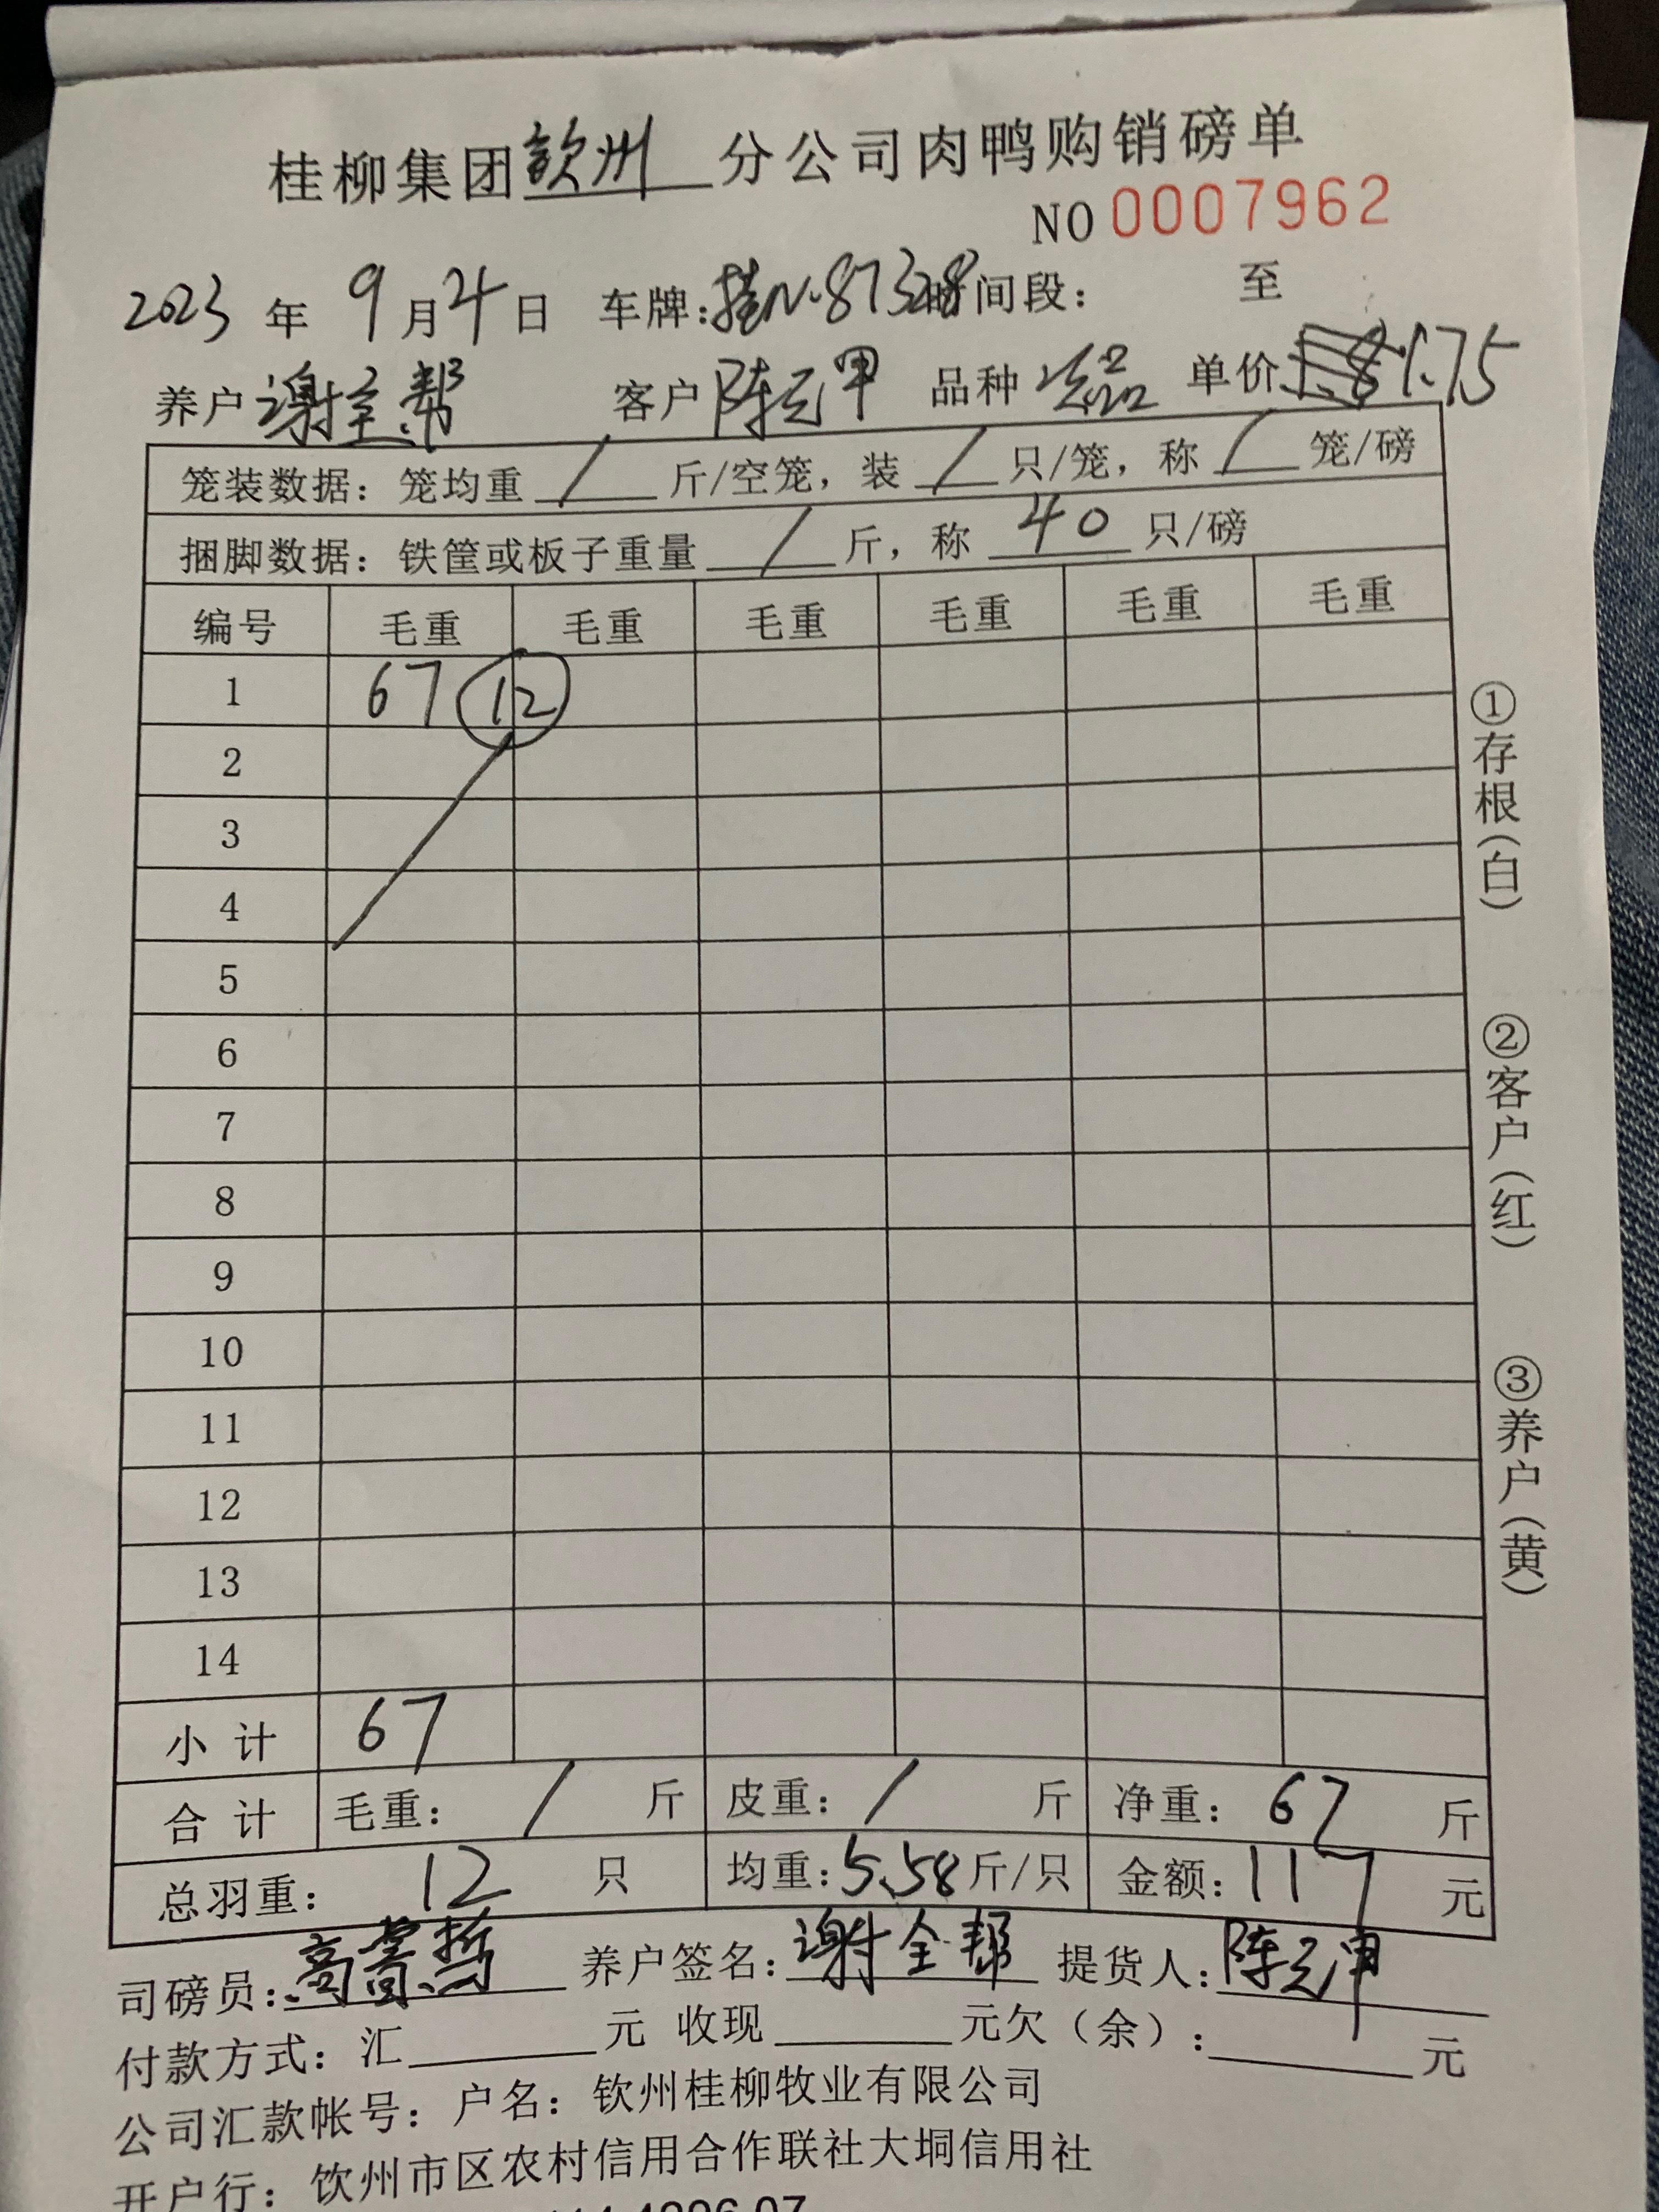 桂柳集团钦州分公司肉鸭购销磅单
NO 0007962
2023年9月4日 车牌：桂N·87328 时间段： 至
养户 谢全帮 客户 陈元甲 品种 单价 1.75
笼装数据：笼均重 / 斤/空笼，装 / 只/笼，称 / 笼/磅
捆脚数据：铁筐或板子重量 / 斤，称 40 只/磅
编号 毛重 毛重 毛重 毛重 毛重 毛重
1 67 12
2
3
4
5
6
7
8
9
10
11
12
13
14
小计 67
合计 毛重： / 斤 皮重： / 斤 净重：67 斤
总羽重： 12 只 均重：5.58斤/只 金额：117 元
司磅员： 养户签名：谢全帮 提货人：陈元甲
付款方式：汇 元 收现 元欠（余）： 元
公司汇款帐号：户名：钦州桂柳牧业有限公司
开户行：钦州市区农村信用合作联社大垌信用社
①存根（白）
②客户（红）
③养户（黄）